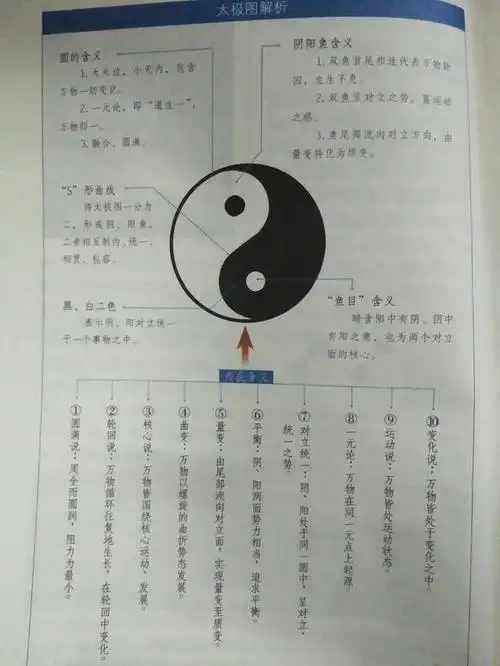 太极图解析
圆的含义
1.大无边，小无内，包含
万物一切变化。
2.一元论，即“道生一”，
万物归一。
3.融合、圆满。
阴阳鱼含义
1.双鱼首尾相连代表万物轮
回，生生不息。
2.双鱼呈对立之势，富运动
之感。
3.鱼尾部流向对立方向，由
量变转化为质变。
“S”形曲线
将太极图一分为
二，形成阴、阳鱼，
二者相互制约、统一、
相贯、包容。
黑、白二色
表示阴、阳对立统一
于一个事物之中。
“鱼目”含义
暗含阳中有阴、阴中
有阳之意，也为两个对立
面的核心。
内在含义
①圆满说：周全而圆润，阻力为最小。
②轮回说：万物循环往复地生长，在轮回中变化。
③核心说：万物皆围绕核心运动、发展。
④曲变：万物以螺旋的曲折势态发展。
⑤量变：由尾部流向对立面，实现量变至质变。
⑥平衡：阴、阳两面势力相当，追求平衡。
⑦对立统一：阴、阳处于同一圆中，呈对立、
统一之势。
⑧一元论：万物在同一元点上起源。
⑨运动说：万物皆处运动状态。
⑩变化说：万物皆处于变化之中。